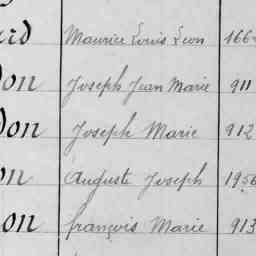 ard Maurice Louis Leon 166
on Joseph Jean Marie 911
on Joseph Marie 912
on Auguste Joseph 1956
on françois Marie 913